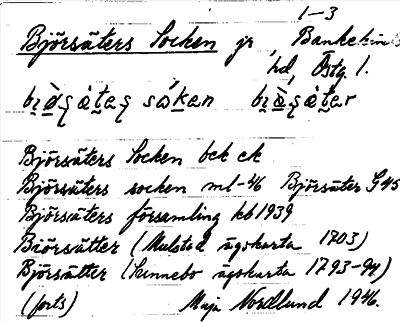 1-3
Björsäters Socken jr, Bankekinds
hd, Östg. l.
Björsäters Socken bck ck
Björsäters socken ml-46 Björsäter G45
Björsäters församling kb 1939
Biörsätter (Mulstad ägokarta 1703)
Björsätter (Sunnebo ägokarta 1793-94)
(forts) Maja Nordlund 1946.